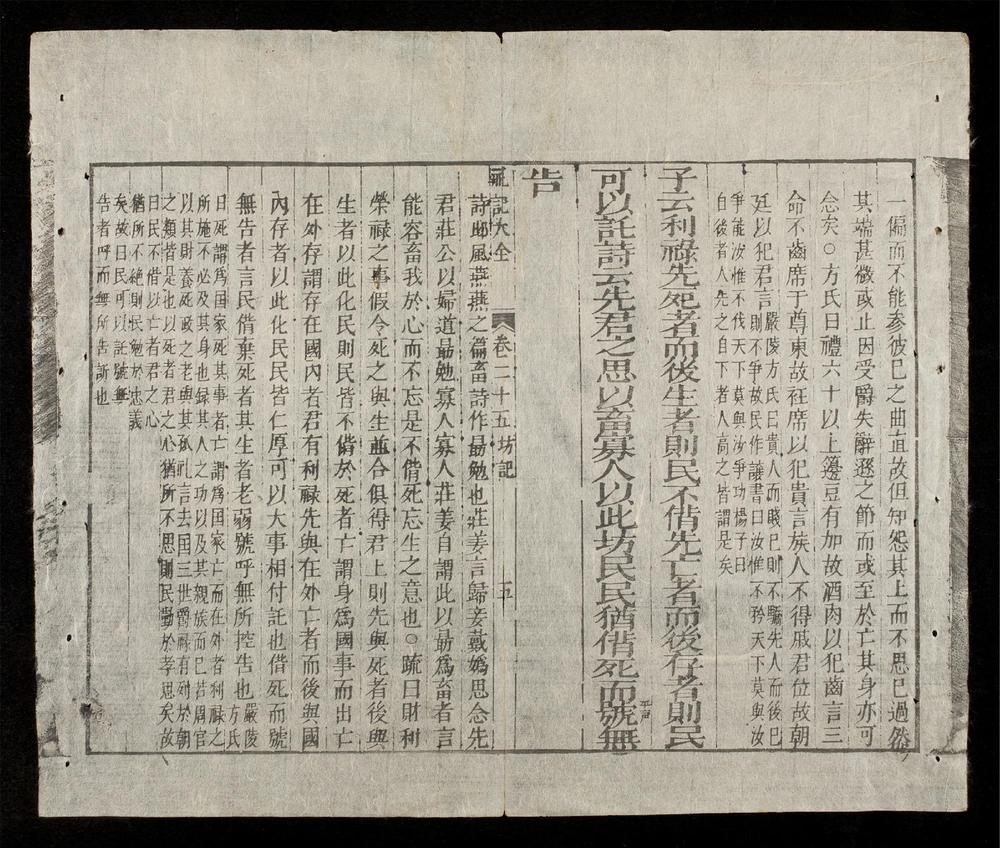 一偏而不能參彼己之曲直故但知怨其上而不思已過然
其端甚微或止因受爵失辭遜之節而或至於亡其身亦可
念矣○方氏曰禮六十以上籩豆有加故酒肉以犯齒言三
命不齒席于尊東故衽席以犯貴言族人不得戚君位故朝
廷以犯君言
嚴陵方氏曰貴人而賤已則不驕先人而後已
則不爭故民作讓書曰汝惟不矜天下莫與汝
爭能汝惟不伐天下莫與汝爭功楊子曰
自後者人先之自下者人高之皆謂是矣
子云利祿先死者而後生者則民不偝先亡者而後存者則民
可以託詩云先君之思以畜寡人以此坊民民猶偝死而號無
平聲
告
禮記大全 卷二十五坊記 五
詩邶風燕燕之篇畜詩作勗勉也莊姜言歸妾戴嬀思念先
君莊公以婦道勗勉寡人寡人莊姜自謂此以勗爲畜者言
能容畜我於心而不忘是不偝死忘生之意也○疏曰財利
榮祿之事假令死之與生並合俱得君上則先與死者後與
生者以此化民則民皆不偝於死者亡謂身爲國事而出亡
在外存謂存在國內者君有利祿先與在外亡者而後與國
內存者以此化民民皆仁厚可以大事相付託也偝死而號
無告者言民偝棄死者其生者老弱號呼無所控告也
嚴陵
方氏
曰死謂爲国家死其事者亡謂爲国家亡而在外者利祿之
所施不必及其身也録其人之功以及其親族而已若周官
以其財養死政之老與其孤礼言去国三世爵禄有列於朝
之類皆是也以死者君之心猶所不思則民勸於孝思矣故
曰民不偝以亡者君之心
猶所不絕則民勉於忠義
矣故曰民可以託號無
告者呼而無所告訴也